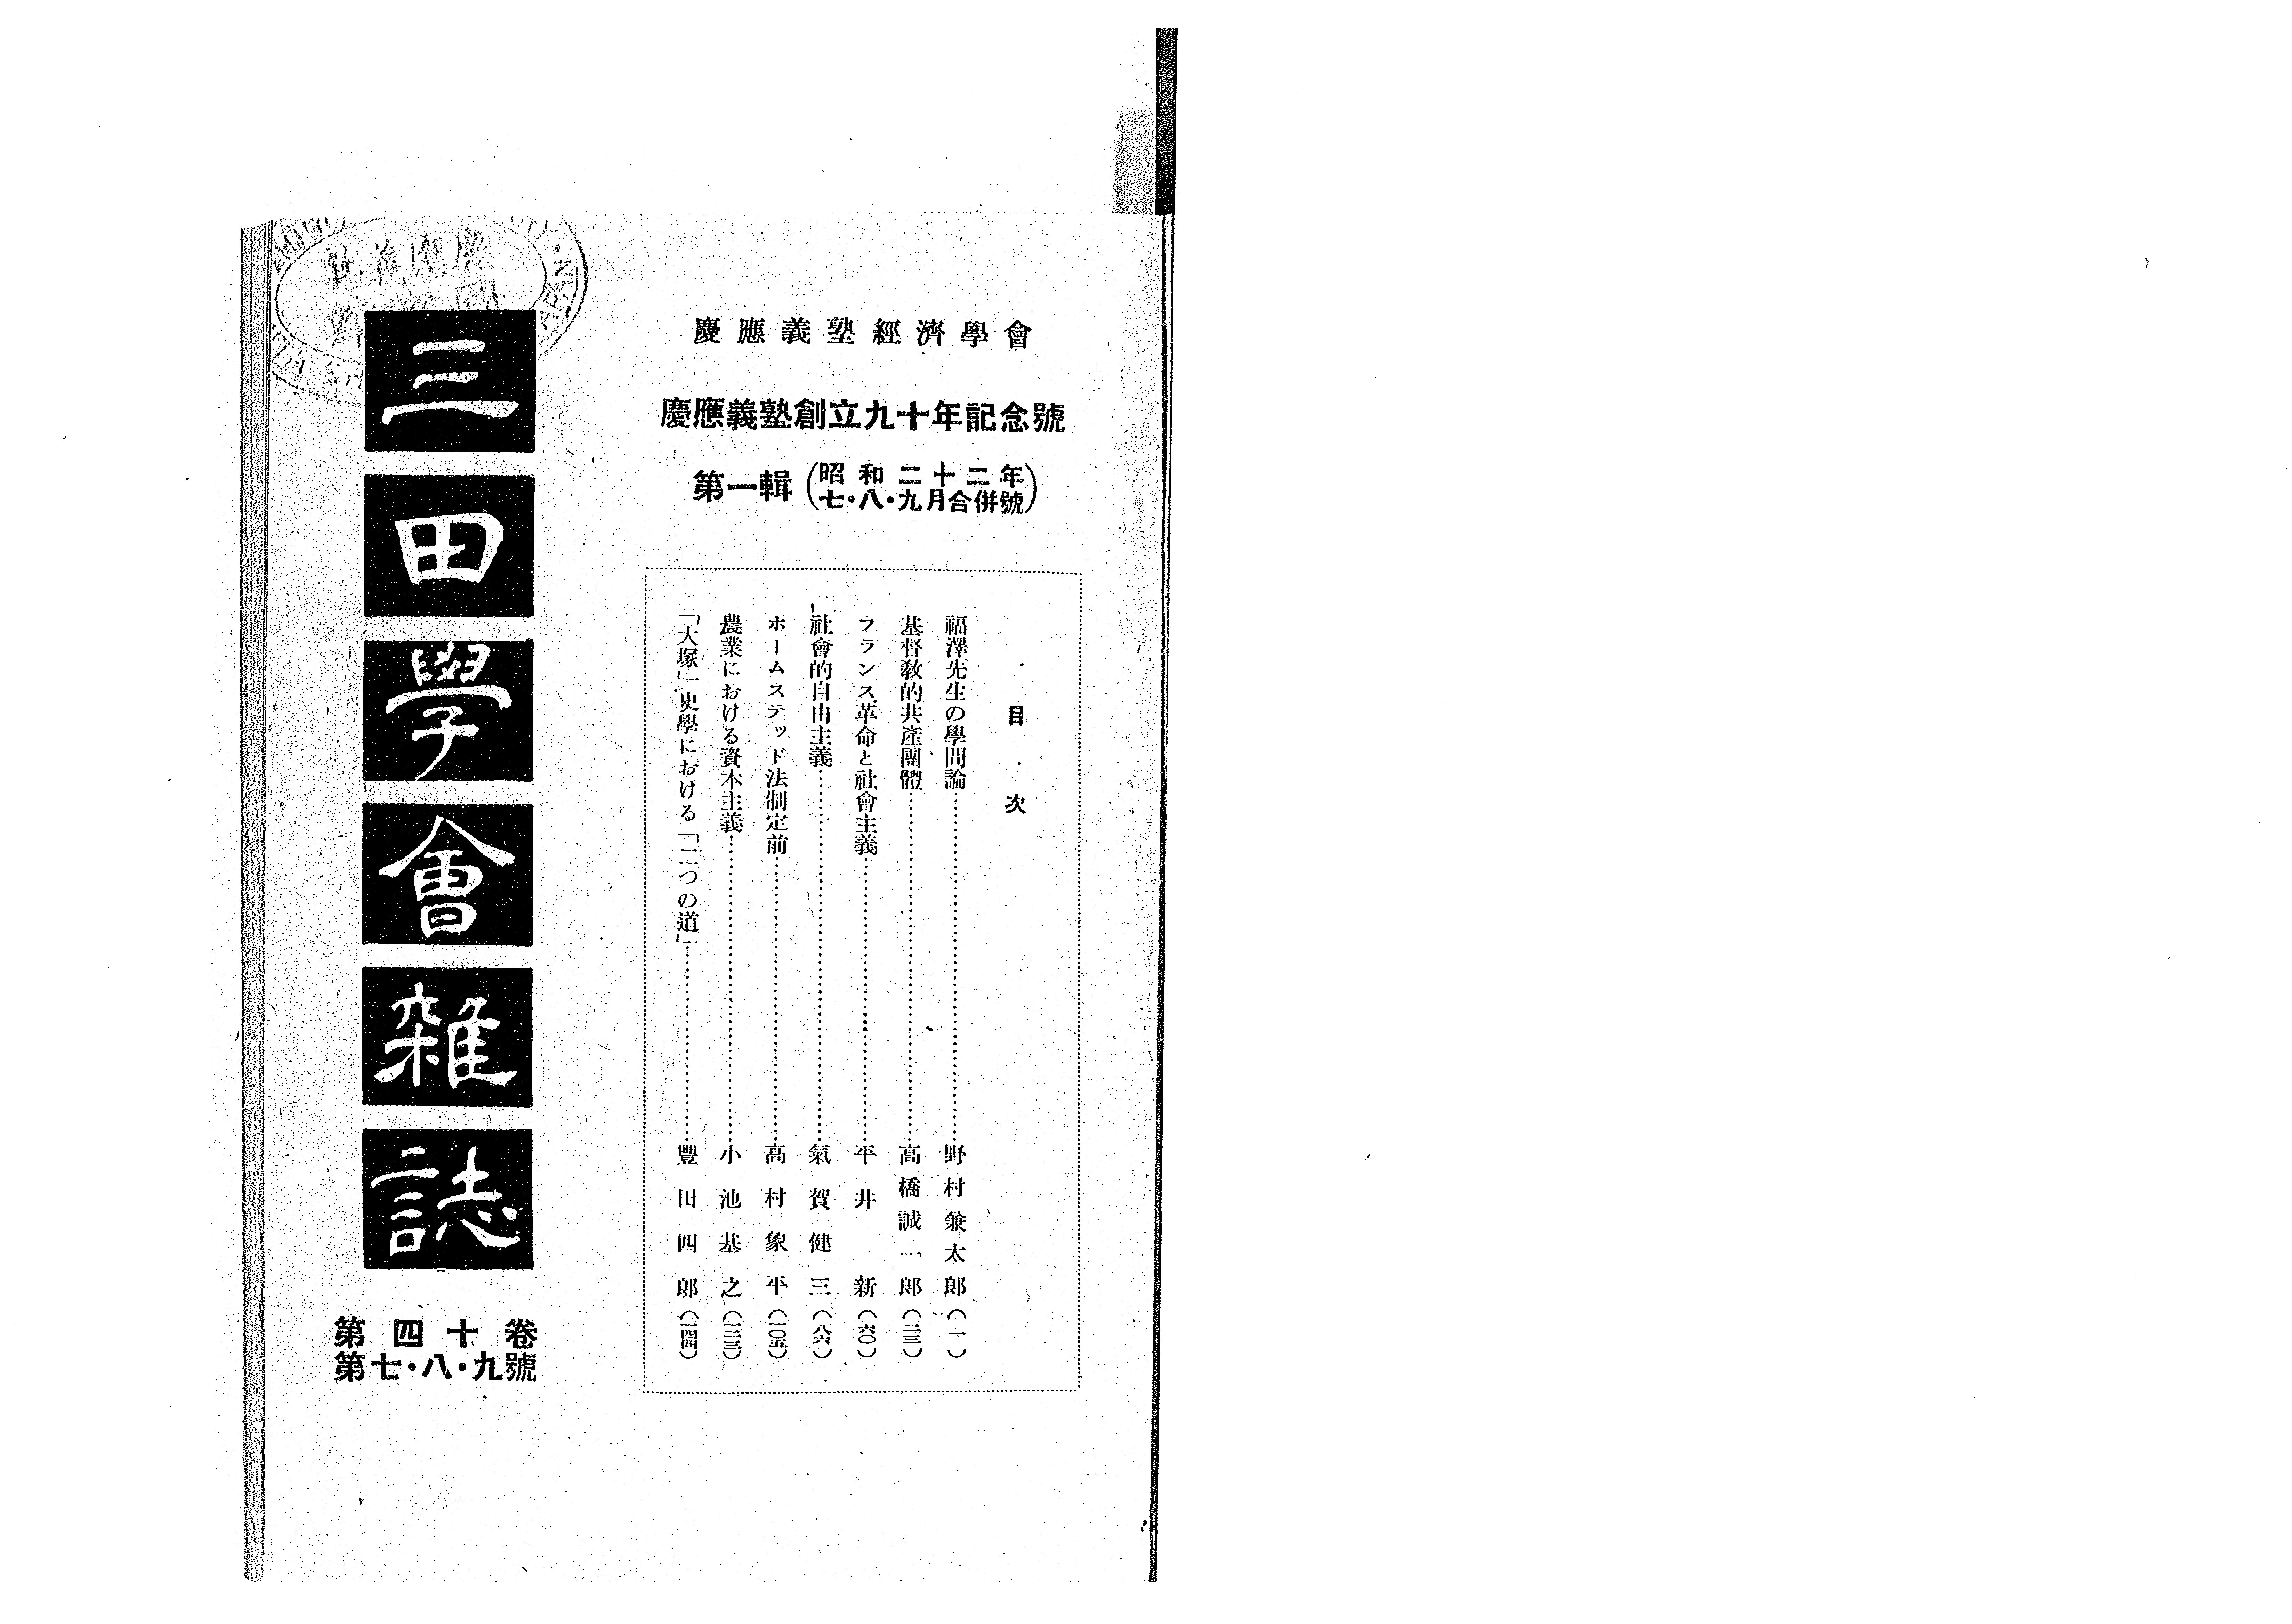 慶應義塾經濟學會
慶應義塾創立九十年記念號
第一輯(昭和二十二年七・八・九月合併號)
目次
福澤先生の學問論……野村兼太郎(一)
基督敎的共產團體……高橋誠一郎(二三)
フランス革命と社會主義……平井新(六〇)
社會的自由主義……氣賀健三(八六)
ホームステッド法制定前……高村象平(一〇五)
農業における資本主義……小池基之(一二三)
「大塚」史學における「二つの道」……豐田四郎(一四四)
三田學會雜誌
第四十卷
第七・八・九號